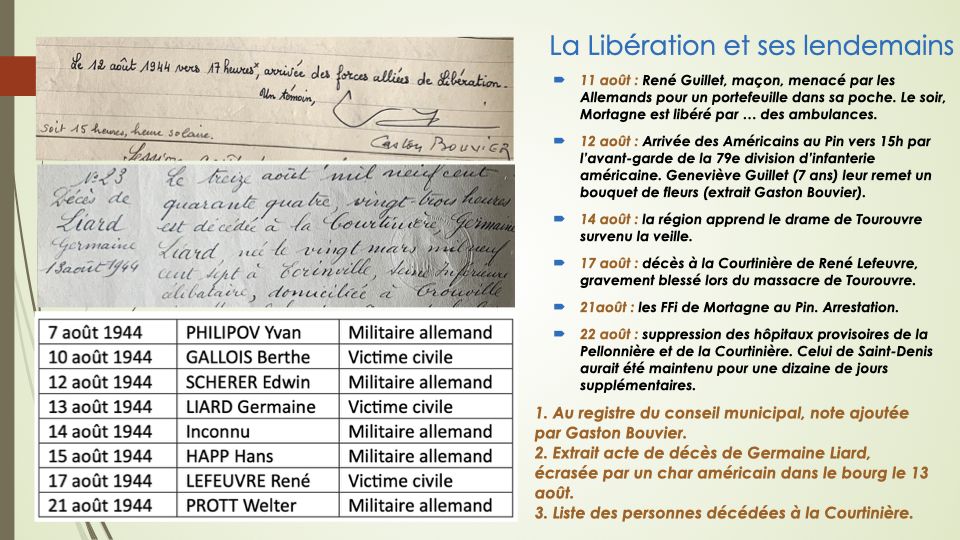 La Libération et ses lendemains
Le 12 août 1944 vers 17 heures×, arrivée des forces alliées de Libération.
Un témoin,
soit 15 heures, heure solaire.
Gaston BOUVIER
N° 23
Décès de
Liard
Germaine
13 août 1944
Le treize août mil neuf cent
quarante quatre, vingt-trois heures
est décédée à la Courtinière, Germaine
Liard, née le vingt mars mil neuf
cent sept à Bainville, Seine Inférieure
célibataire, domiciliée à Trouville
7 août 1944 PHILIPOV Yvan Militaire allemand
10 août 1944 GALLOIS Berthe Victime civile
12 août 1944 SCHERER Edwin Militaire allemand
13 août 1944 LIARD Germaine Victime civile
14 août 1944 Inconnu Militaire allemand
15 août 1944 HAPP Hans Militaire allemand
17 août 1944 LEFEUVRE René Victime civile
21 août 1944 PROTT Welter Militaire allemand
11 août : René Guillet, maçon, menacé par les
Allemands pour un portefeuille dans sa poche. Le soir,
Mortagne est libéré par ... des ambulances.
12 août : Arrivée des Américains au Pin vers 15h par
l'avant-garde de la 79e division d'infanterie
américaine. Geneviève Guillet (7 ans) leur remet un
bouquet de fleurs (extrait Gaston Bouvier).
14 août : la région apprend le drame de Tourouvre
survenu la veille.
17 août : décès à la Courtinière de René Lefeuvre,
gravement blessé lors du massacre de Tourouvre.
21août : les FFi de Mortagne au Pin. Arrestation.
22 août : suppression des hôpitaux provisoires de la
Pellonnière et de la Courtinière. Celui de Saint-Denis
aurait été maintenu pour une dizaine de jours
supplémentaires.
1. Au registre du conseil municipal, note ajoutée
par Gaston Bouvier.
2. Extrait acte de décès de Germaine Liard,
écrasée par un char américain dans le bourg le 13
août.
3. Liste des personnes décédées à la Courtinière.